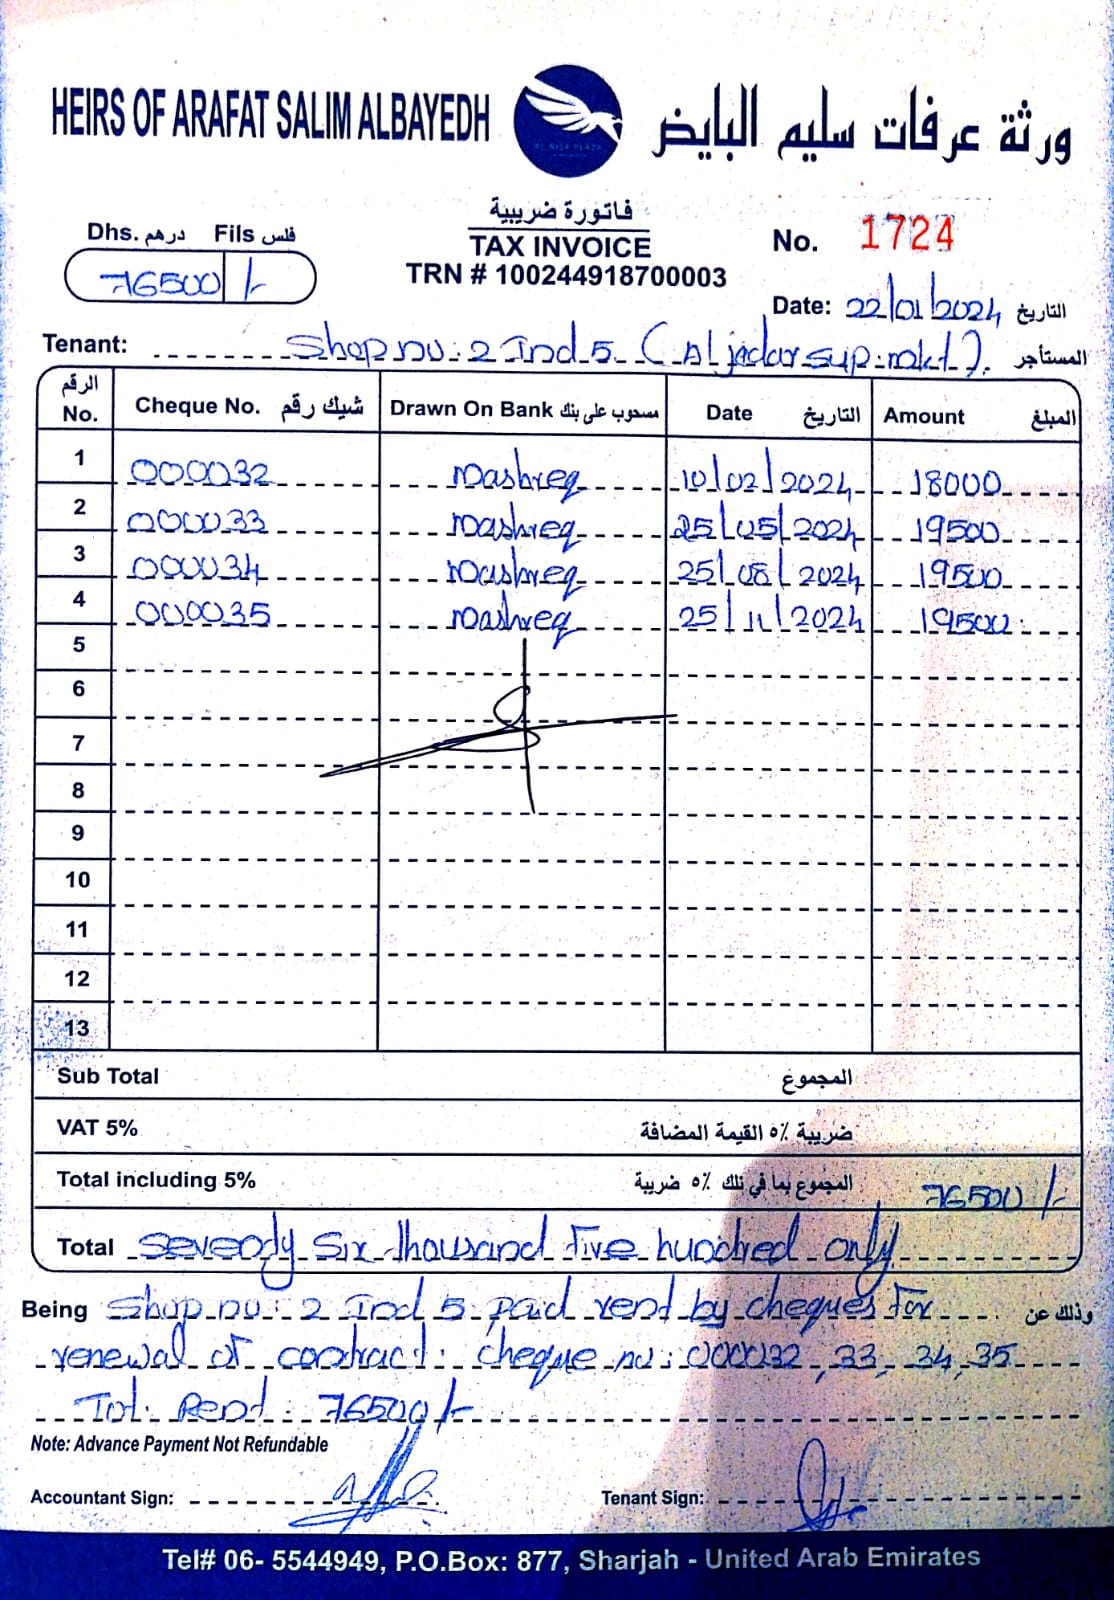 HEIRS OF ARAFAT SALIM ALBAYEDH
ورثة عرفات سليم البايض
AL NASR PLAZA
فاتورة ضريبية
TAX INVOICE
TRN # 100244918700003
Dhs. درهم Fils فلس
76500 /-
No. 1724
Date: 22/01/2024 التاريخ
Tenant: Shop no: 2 Ind 5 (Al jadar sup. mkt). المستأجر
الرقم No. Cheque No. شيك رقم Drawn On Bank مسحوب على بنك Date التاريخ Amount المبلغ
1 000032 Mashreq 10/02/2024 18000
2 000033 Mashreq 25/05/2024 19500
3 000034 Mashreq 25/08/2024 19500
4 000035 Mashreq 25/11/2024 19500
5
6
7
8
9
10
11
12
13
Sub Total المجموع
VAT 5% ضريبة ٥٪ القيمة المضافة
Total including 5% المجموع بما في ذلك ٥٪ ضريبة 76500/-
Total Seventy Six thousand five hundred only
Being Shop no: 2 Ind 5 paid rent by cheques for وذلك عن
renewal of contract. cheque no: 000032, 33, 34, 35
Tot. Rent. 76500/-
Note: Advance Payment Not Refundable
Accountant Sign: Tenant Sign:
Tel# 06- 5544949, P.O.Box: 877, Sharjah - United Arab Emirates